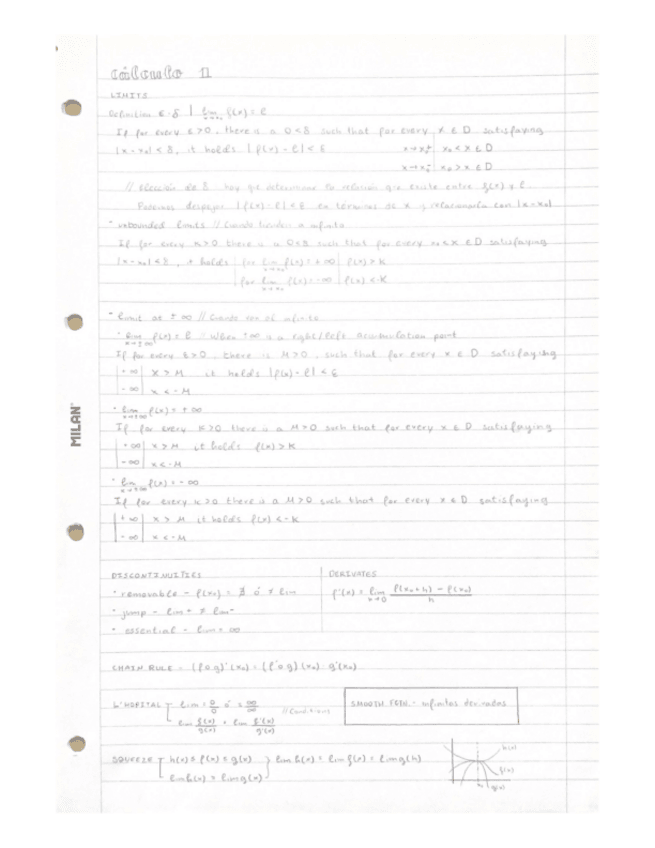 Cálculo 1
LIMITS
Definition ε-δ | lim x→x₀ f(x) = ℓ
If for every ε>0, there is a 0<δ such that for every x ∈ D satisfaying
|x-x₀|<δ, it holds |f(x)-ℓ|<ε x→x₀⁺ | x₀<x ∈ D
x→x₀⁻ | x₀>x ∈ D
// Elección de δ hay que determinar la relación que existe entre f(x) y ℓ.
Podemos despejar |f(x)-ℓ|<ε en términos de x y relacionarla con |x-x₀|
· unbounded limits // Cuando tienden a infinito
If for every K>0 there is a 0<δ such that for every x₀≠x ∈ D satisfaying
|x-x₀|<δ, it holds | for lim x→x₀ f(x)=+∞ | f(x)>K
for lim x→x₀ f(x)=-∞ | f(x)<-K
· limit at ±∞ // Cuando van al infinito
· lim x→±∞ f(x)=ℓ - When +∞ is a right/left accumulation point
If for every ε>0, there is M>0, such that for every x ∈ D satisfaying
|+∞| x>M it holds |f(x)-ℓ|<ε
|-∞| x<-M
· lim x→±∞ f(x)=+∞
If for every K>0 there is a M>0 such that for every x ∈ D satisfaying
|+∞| x>M it holds f(x)>K
|-∞| x<-M
· lim x→±∞ f(x)=-∞
If for every K>0 there is a M>0 such that for every x ∈ D satisfaying
|+∞| x>M it holds f(x)<-K
|-∞| x<-M
MILAN
DISCONTINUITIES
· removable - f(x₀)=∄ ó ≠ lim
· jump - lim⁺ ≠ lim⁻
· essential - lim = ∞
DERIVATES
f'(x) = lim h→0 (f(x₀+h) - f(x₀))/h
CHAIN RULE - (f∘g)'(x₀) = (f'∘g)(x₀)·g'(x₀)
L'HOPITAL lim = 0/0 ó ±∞/∞ // Conditions
lim f(x)/g(x) = lim f'(x)/g'(x)
SMOOTH FCON - infinitas derivadas
SQUEEZE h(x) ≤ f(x) ≤ g(x) } lim h(x) = lim f(x) = lim g(h)
lim h(x) = lim g(x)
h(x)
f(x)
g(x)